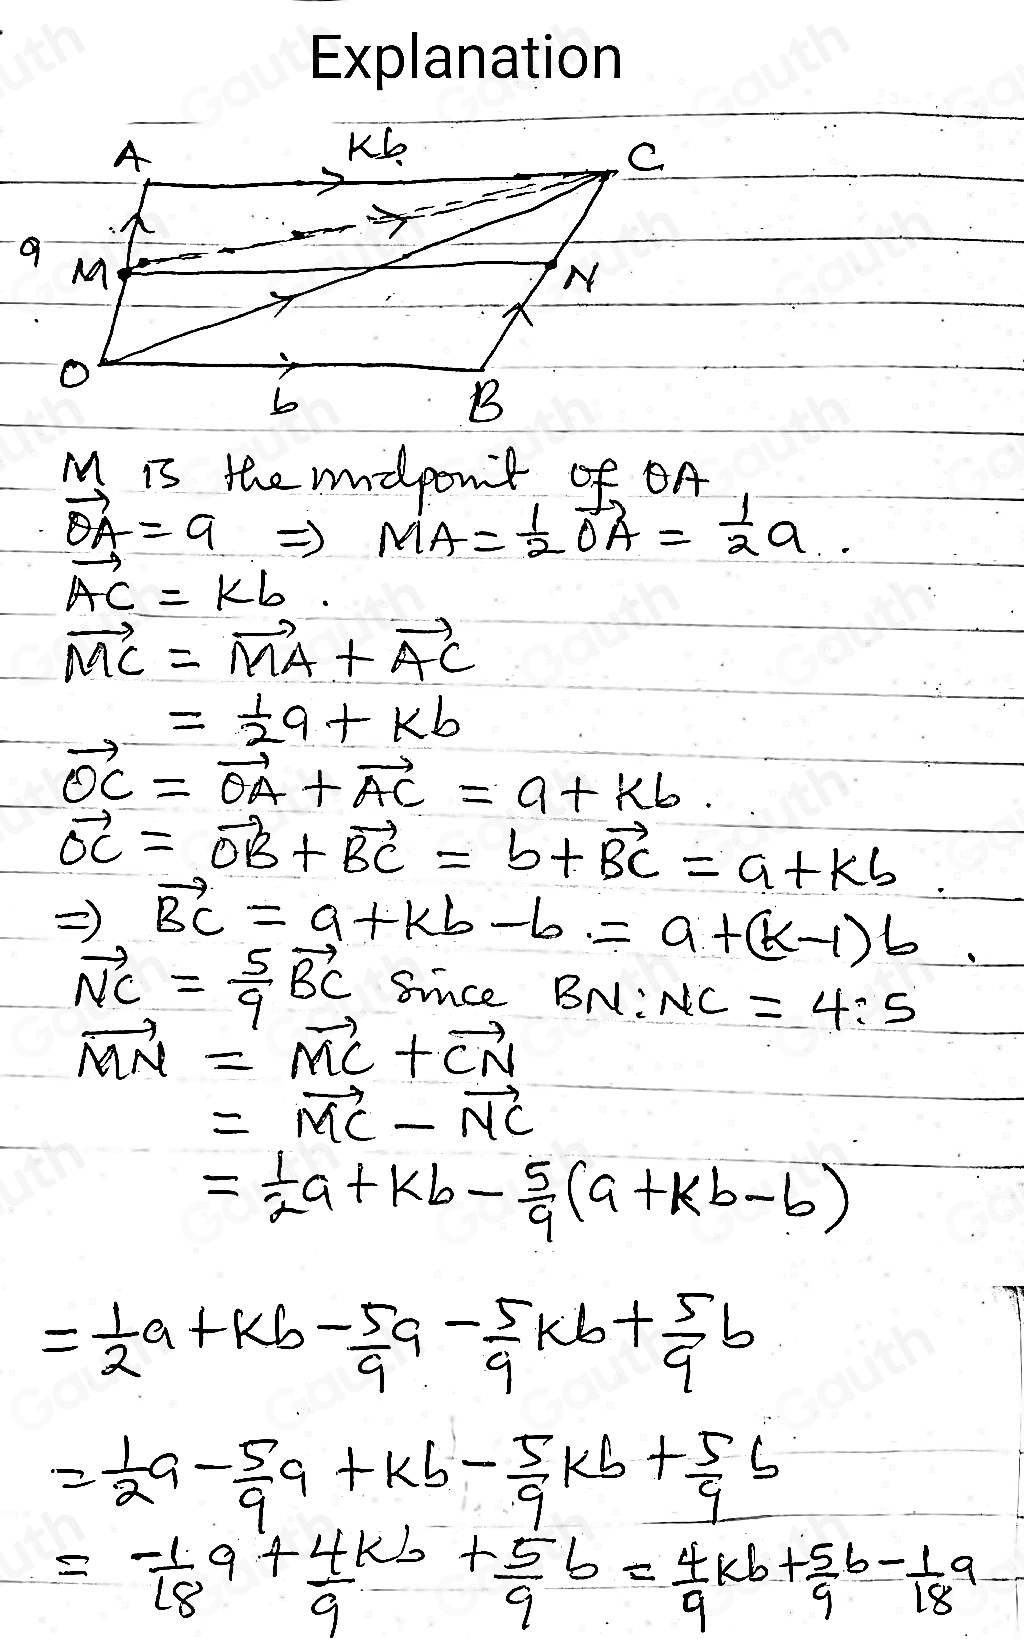 Explanation
A Kb C
a M N
O b B
M is the midpoint of OA
OA⃗ = a ⇒ MA = 1/2 OA⃗ = 1/2 a.
AC⃗ = Kb.
MC⃗ = MA⃗ + AC⃗
= 1/2 a + Kb
OC⃗ = OA⃗ + AC⃗ = a + Kb.
OC⃗ = OB⃗ + BC⃗ = b + BC⃗ = a + Kb.
⇒ BC⃗ = a + Kb - b = a + (K-1)b.
NC⃗ = 5/9 BC⃗ since BN:NC = 4:5
MN⃗ = MC⃗ + CN⃗
= MC⃗ - NC⃗
= 1/2 a + Kb - 5/9 (a + Kb - b)
= 1/2 a + Kb - 5/9 a - 5/9 Kb + 5/9 b
= 1/2 a - 5/9 a + Kb - 5/9 Kb + 5/9 b
= -1/18 a + 4/9 Kb + 5/9 b = 4/9 Kb + 5/9 b - 1/18 a